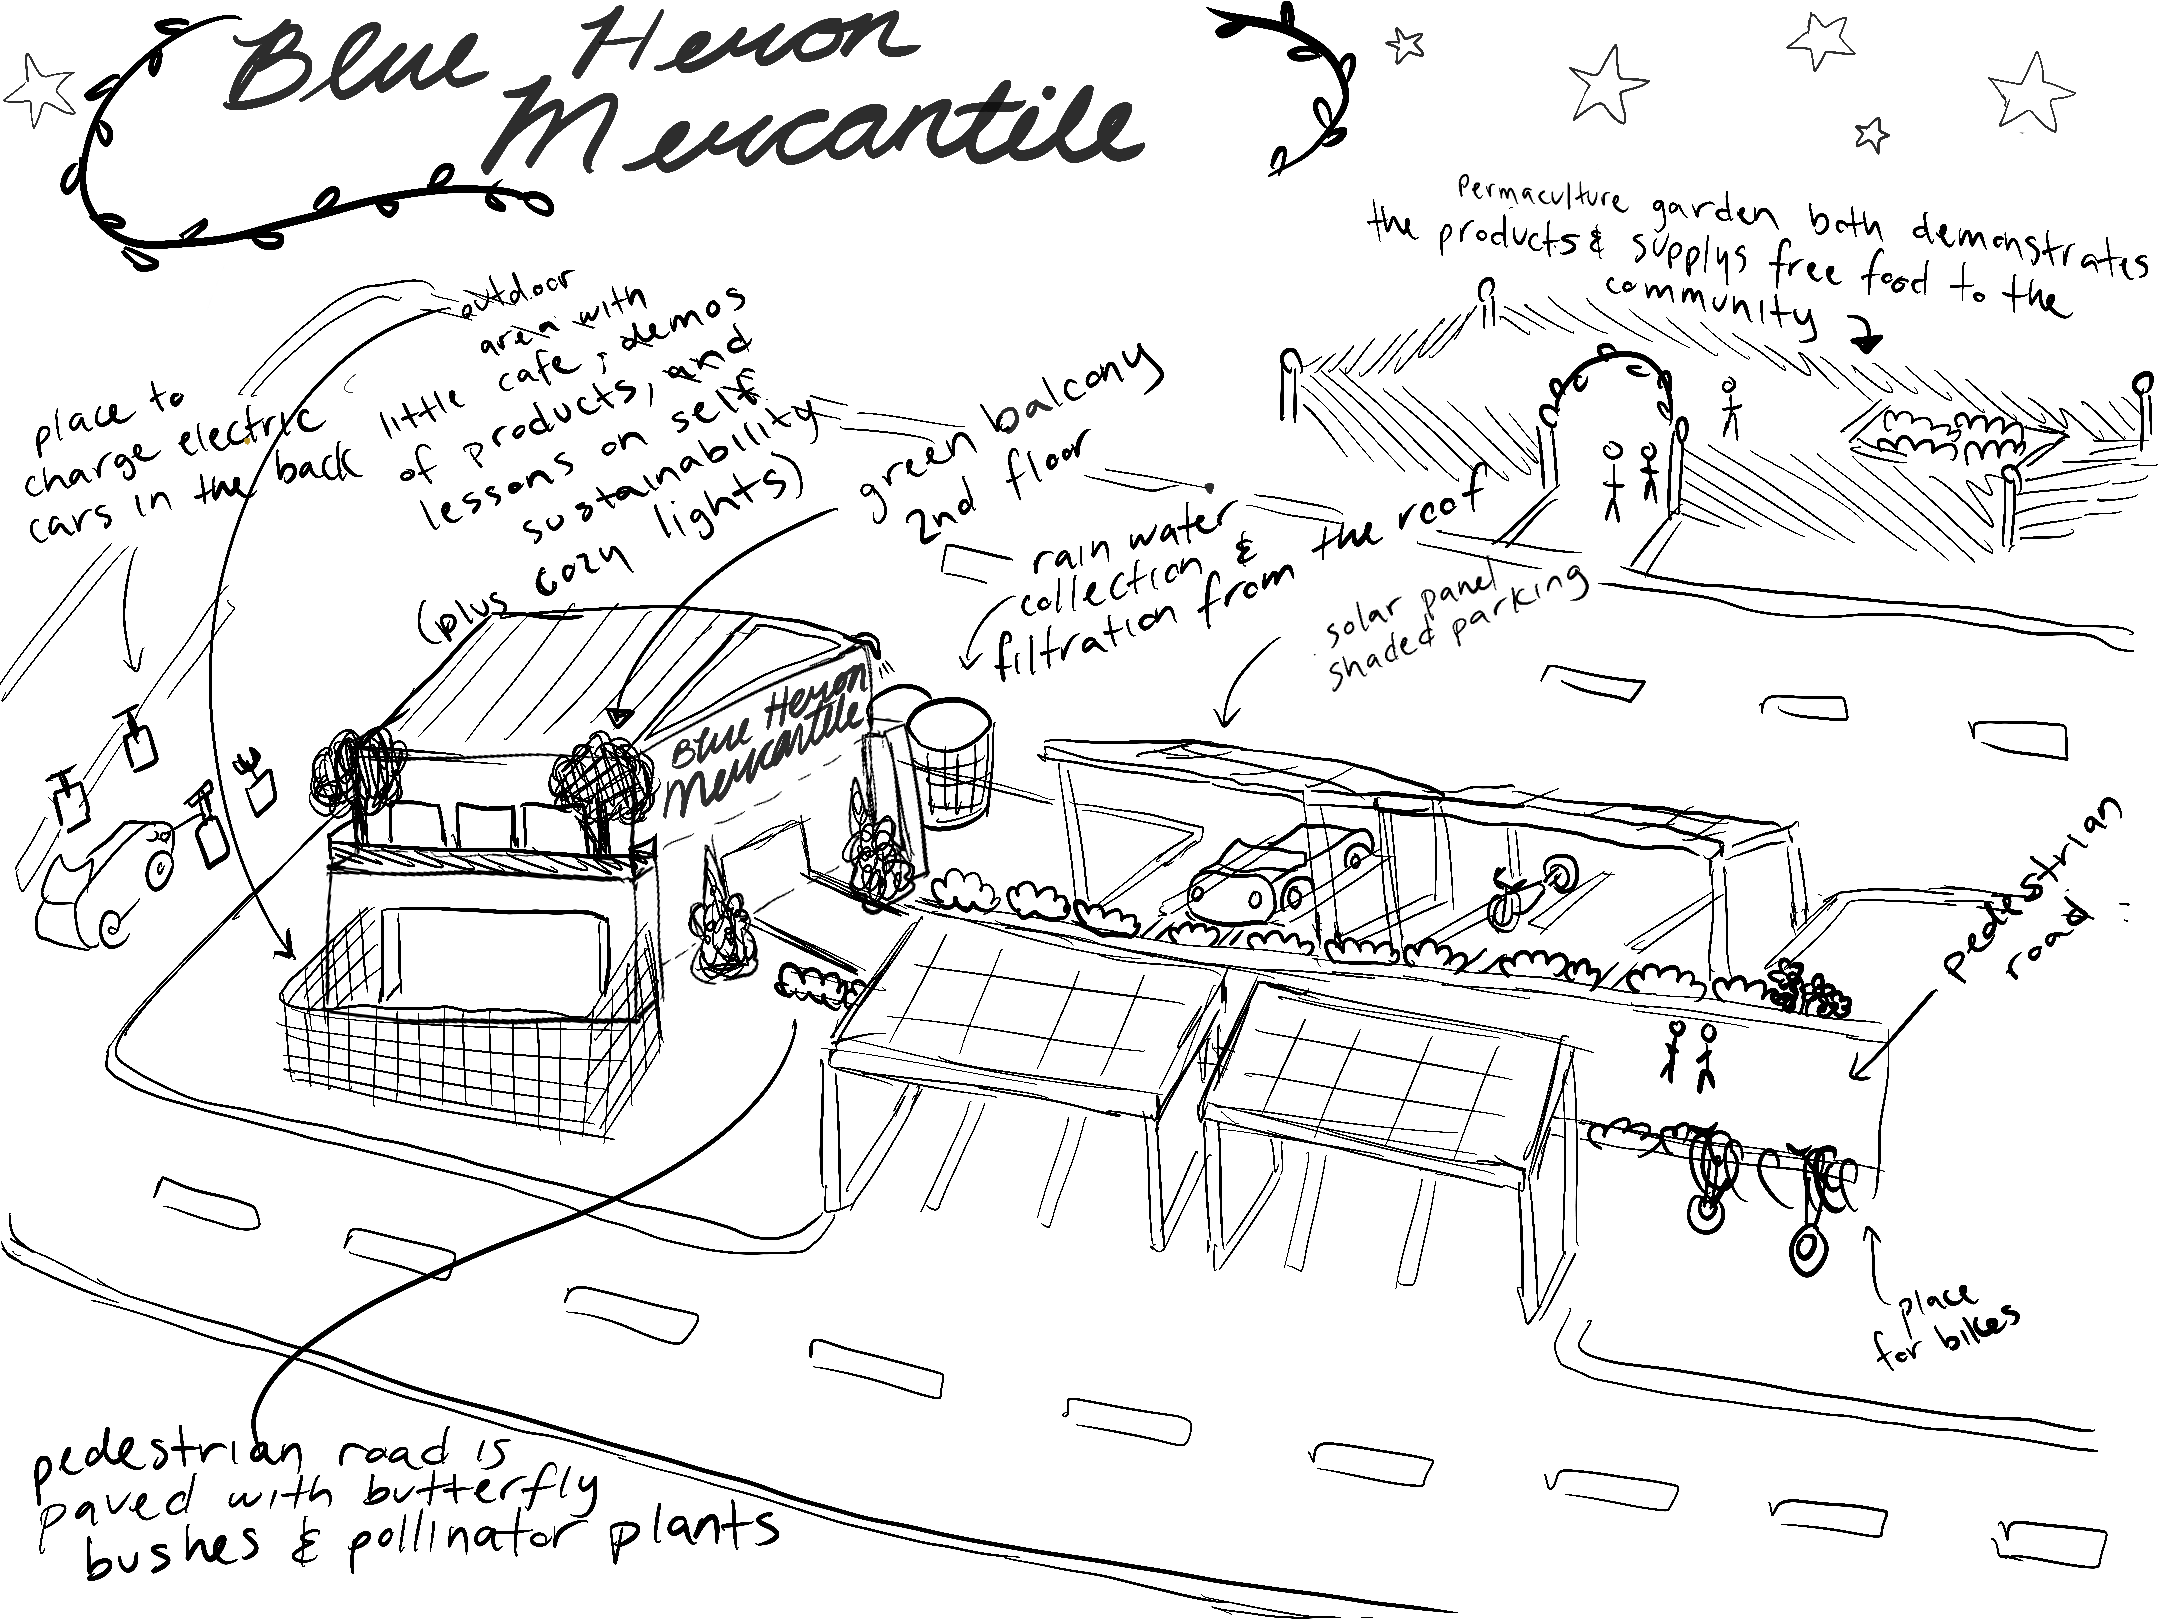 Blue Heron
Mercantile
permaculture garden both demonstrates
the products & supplys free food to the
community
outdoor
area with
little cafe, demos
of products, and
lessons on self
sustainability
(plus cozy lights)
place to
charge electric
cars in the back
green balcony
2nd floor
rain water
collection &
filtration from the roof
solar panel
shaded parking
Blue Heron
Mercantile
pedestrian
road
place
for bikes
pedestrian road is
paved with butterfly
bushes & pollinator plants